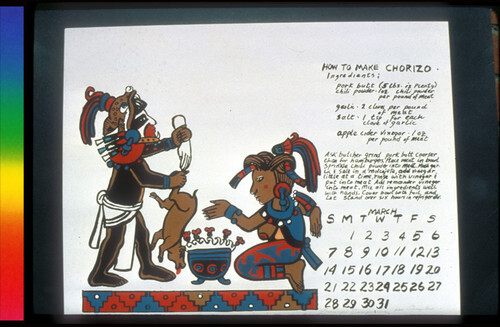 HOW TO MAKE CHORIZO.
Ingredients;
pork butt (5 lbs. is plenty)
chili powder - 1oz chili powder
per pound of meat
garlic - 2 cloves per pound
of meat
Salt - 1 tsp for each
clove of garlic
apple cider vinegar - 1oz
per pound of meat
Ask butcher grind pork butt coarser
than for hamburger. Place meat in bowl
Sprinkle chili powder into meat.
in & salt in a molcajete, add vinegar
little at a time,
put into meat Add remainder vinegar
into meat. Mix all ingredients well
with hands. Cover bowl with foil, and
let stand over six hours in refrigerator.
MARCH
S M T W T F S
1 2 3 4 5 6
7 8 9 10 11 12 13
14 15 16 17 18 19 20
21 22 23 24 25 26 27
28 29 30 31